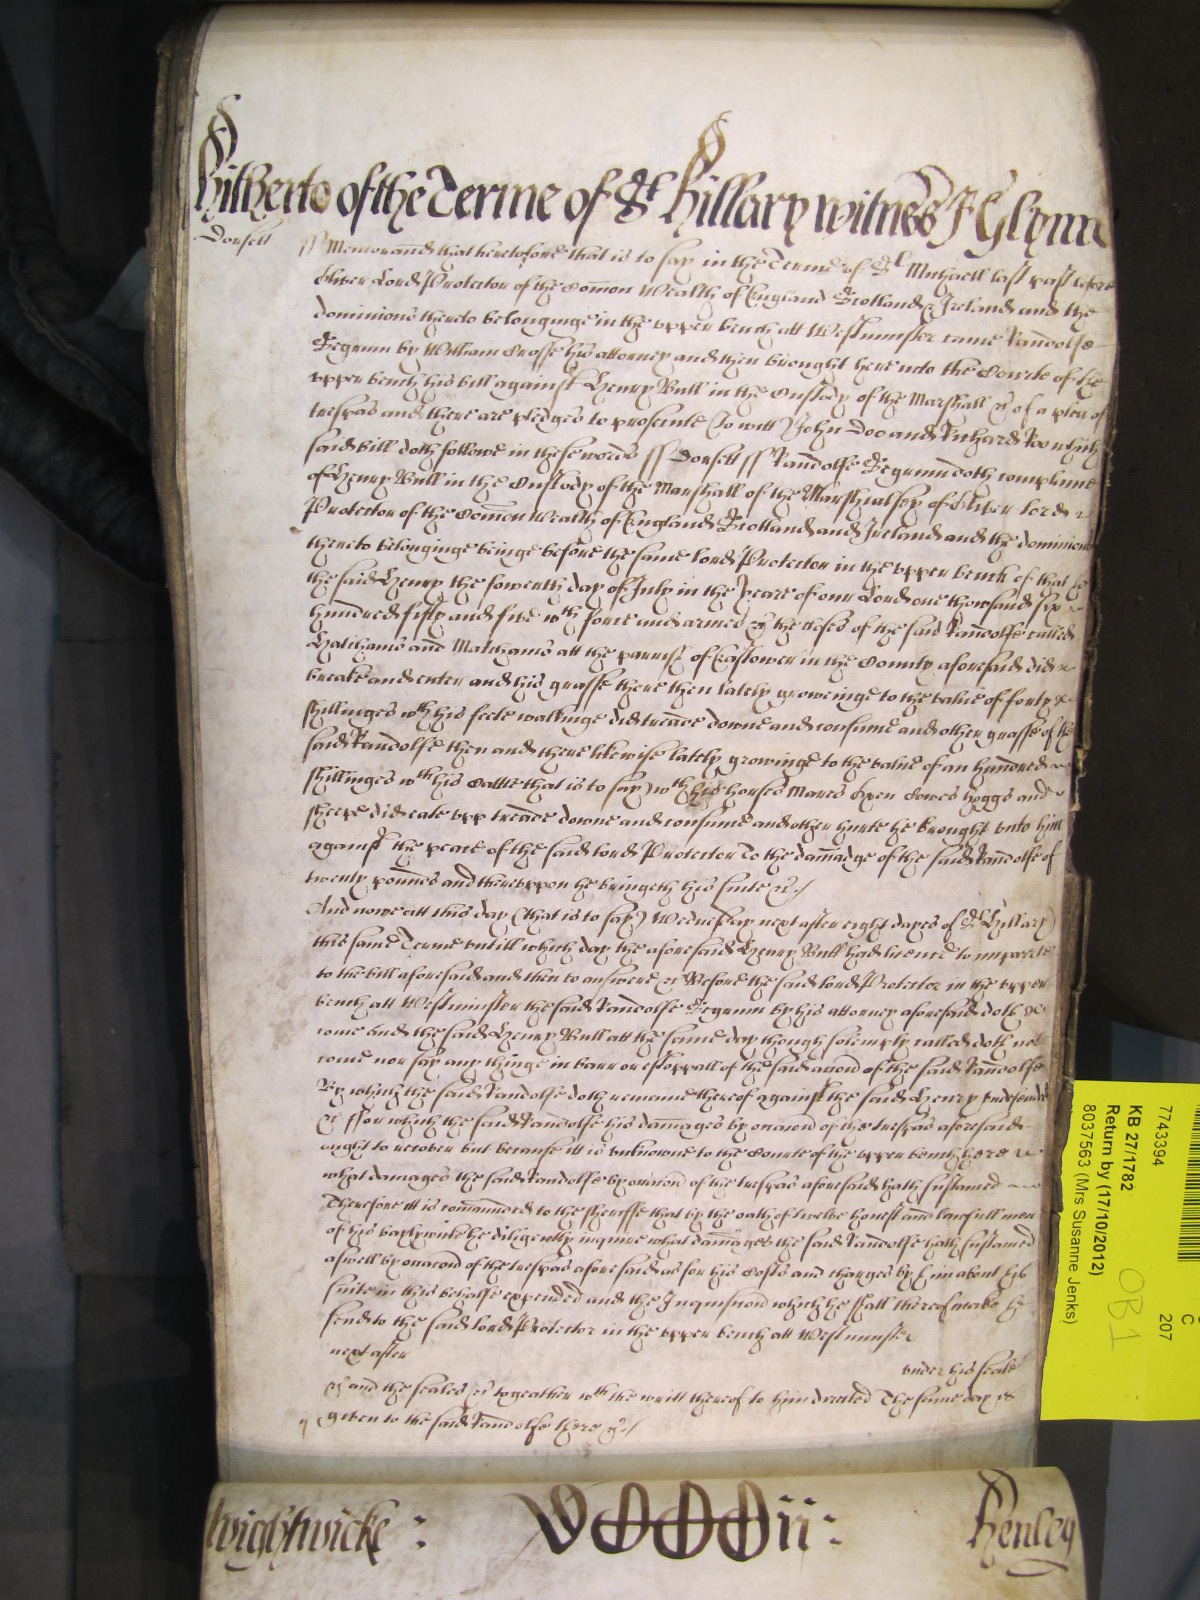 Hitherto of the Terme of St Hillary witnes J Glynn
Dorsett ss Memorand that heretofore that is to say in the Terme of St Michaell last past before
Oliver Lord Protector of the Comon Wealth of England Scotland & Ireland and the
dominions thereto belonginge in the upper bench att Westminster came Randolfe
Segrum by William Crosse his attorney and then brought here into the Courte of the
upper bench his bill against Henry Bull in the Custody of the Marshall &c of a plea of
trespas and there are pledges to prosecute (to witt) John Doo and Richard Roo which
said bill doth followe in these words ss Dorsett ss Randolfe Segrum doth complaine
of Henry Bull in the Custody of the Marshall of the Marshialsey of Oliver lord
Protector of the Comon Wealth of England Scotland and Ireland and the dominions
thereto belonginge beinge before the same lord Protector in the upper bench of that
the said Henry the fowerth day of July in the yeare of our Lord one thowsand six
hundred fifty and five wth force and armes &c the closes of the said Randolfe called
and att the parrish of in the County aforesaid did
breake and enter and his grasse there then lately groweinge to the value of forty
shillinges wth his feete walkinge did treade downe and consume and other grasse of the
said Randolfe then and there likewise lately growinge to the value of an hundred
shillinges wth his Cattle that is to say) wth his horses Mares Oxen Cowes hoggs and
sheepe did eate upp treade downe and consume and other hurte he brought unto him
against the peace of the said lord Protector To the damadge of the said Randolfe of
twenty pounds and thereuppon he bringeth his suite &c /
And nowe att this day (that is to say) Wednesday next after eight dayes of St Hillary)
this same Terme untill which day the aforesaid Henry Bull had licence to imparle
to the bill aforesaid and then to answere &c Before the said lord Protector in the upper
bench att Westminster the said Randolfe Segrum by his attorney aforesaid doth
come And the said Henry Bull att the same day though solemply called doth not
come nor say any thinge in barr or estoppall of the said accion of the said Randolfe
By which the said Randolfe doth remaine thereof against the said Henry undefended
&c ffor which the said Randolfe his damages by occasion of the trespas aforesaid
ought to recover but because itt is unknowne to the Courte of the upper bench here
what damages the said Randolfe by occasion of the trespas aforesaid hath sustained
Therefore itt is comaunded to the sheriffe that by the oath of twelve honest and lawfull men
of his baylywicke he diligently inquire what damages the said Randolfe hath sustained
aswell by occasion of the trespas aforesaid as for his Costs and charges by him about his
suite in this behalfe expended and the Inquisicion which he shall thereof make he
send to the said lord Protector in the upper bench att Westminster
next after under his seale
&c and the seales &c togeather wth the writt thereof to him directed The same day is
given to the said Randolfe there &c /
Wightwicke : VCCCCii : Henley
C
7743394 207
KB 27/1782
Return by (17/10/2012)
8037563 (Mrs Susanne Jenks)
OB1